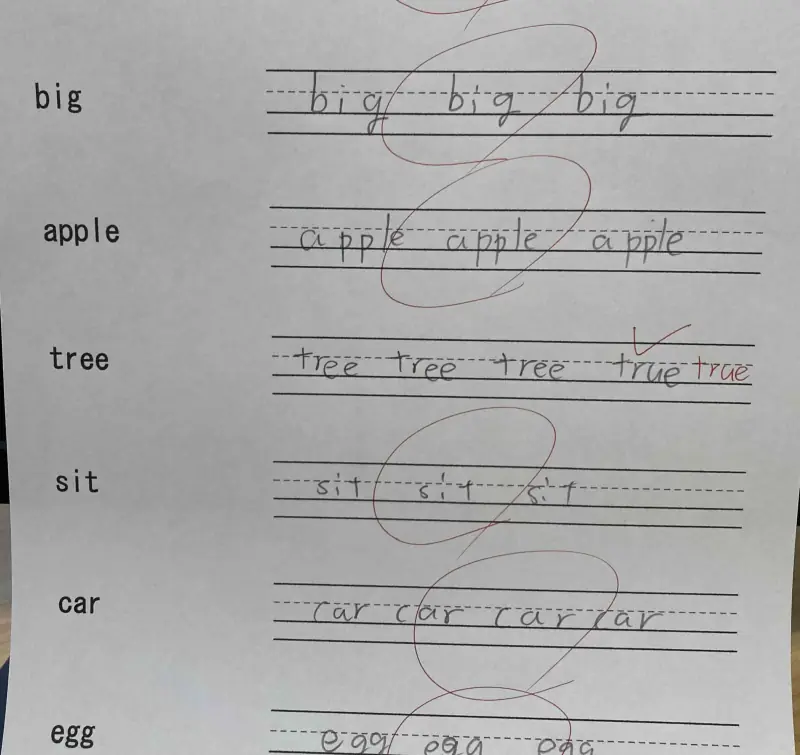 big big big big
apple apple apple apple
tree tree tree tree true true
sit sit sit sit
car car car car car
egg egg egg egg